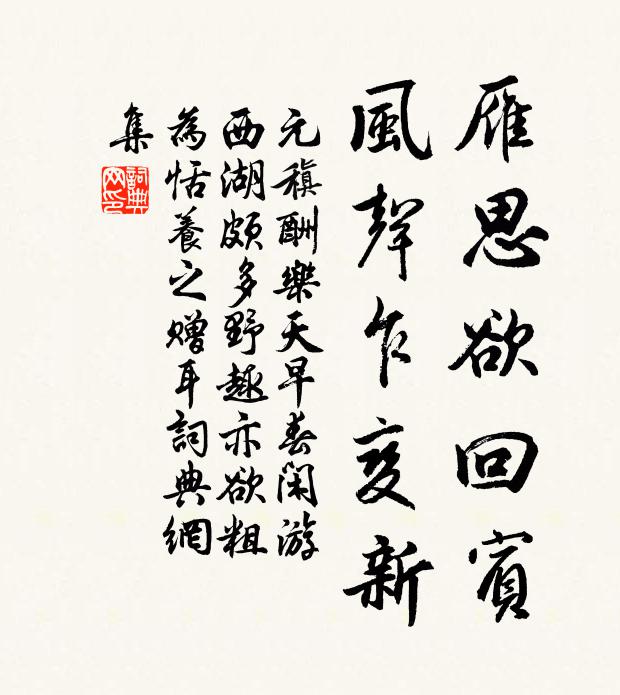 雁思欲回賓
風聲乍變新
元稹酬樂天早春閑游
西湖頗多野趣亦欲粗
為恬養之贈耳詞典網
集
詞典网印